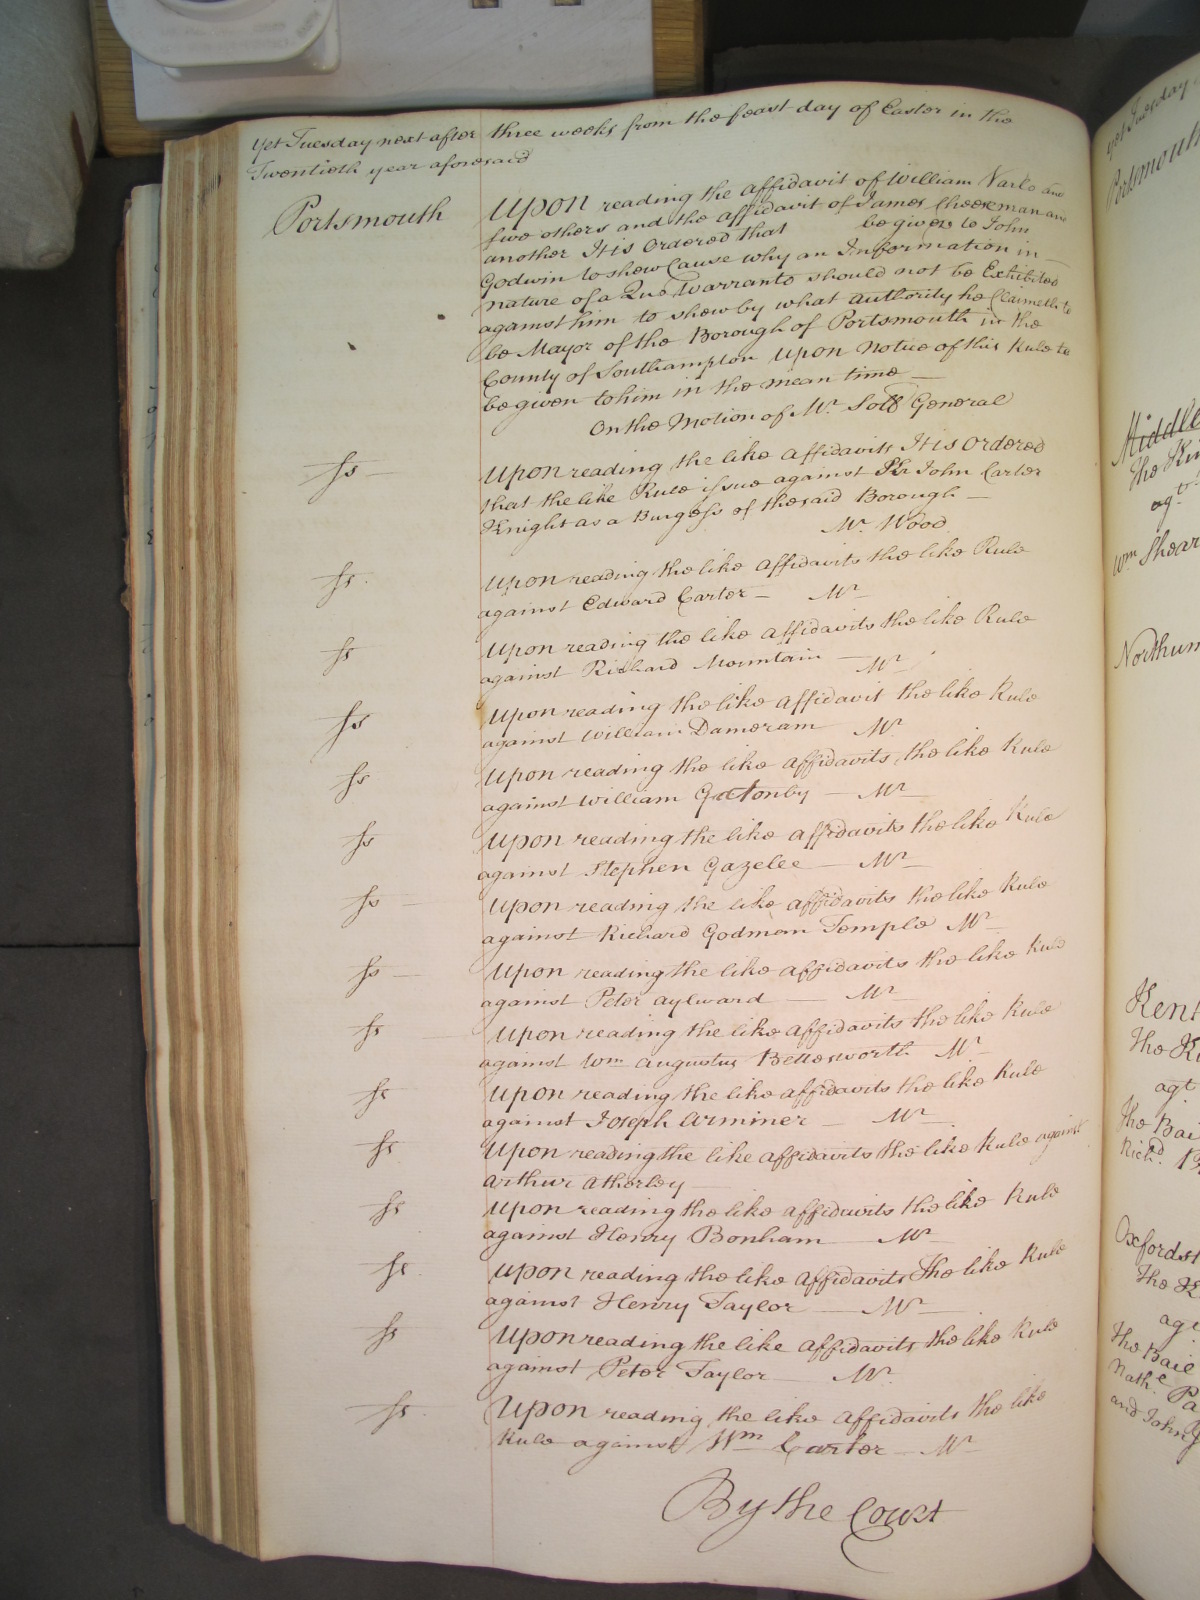 yet Tuesday next after three weeks from the feast day of Easter in the
Twentieth year aforesaid
Portsmouth
Upon reading the affidavit of William Varlo and
five others and the affidavit of James Cheeseman and
another It is Ordered that be given to John
Godwin to shew Cause why an Information in
nature of a Quo Warranto should not be Exhibited
against him to shew by what authority he Claimeth to
be Mayor of the Borough of Portsmouth in the
County of Southampton Upon Notice of this Rule to
be given to him in the mean time
On the Motion of Mr. Soll General
fs
Upon reading the like affidavits It is Ordered
that the like Rule issue against Sir John Carter
Knight as a Burgess of the said Borough
Mr. Wood
fs
Upon reading the like affidavits the like Rule
against Edward Carter Mr
fs
Upon reading the like affidavits the like Rule
against Richard Mountain Mr
fs
Upon reading the like affidavit the like Rule
against William Dameram Mr
fs
Upon reading the like affidavits the like Rule
against William Gatonby Mr
fs
Upon reading the like affidavits the like Rule
against Stephen Gazelee Mr
fs
Upon reading the like affidavits the like Rule
against Richard Godman Temple Mr
fs
Upon reading the like affidavits the like Rule
against Peter aylward Mr
fs
Upon reading the like affidavits the like Rule
against Wm augustus Bettesworth Mr
fs
Upon reading the like affidavits the like Rule
against Joseph Arminer Mr
fs
Upon reading the like affidavits the like Rule against
arthur atherley
fs
Upon reading the like affidavits the like Rule
against Henry Bonham Mr
fs
Upon reading the like affidavits The like Rule
against Henry Taylor Mr
fs
Upon reading the like affidavits the like Rule
against Peter Taylor Mr
fs
Upon reading the like affidavits the like
Rule against Wm Carter Mr
By the Court
yet Tuesday
Portsmouth
Middle
The Kin
agt.
Wm Shear
Northum
Kent
The Ki
agt
The Bai
Richd.
Oxfordsh
The K
agt
The Bail
Nathl. Pa
and John